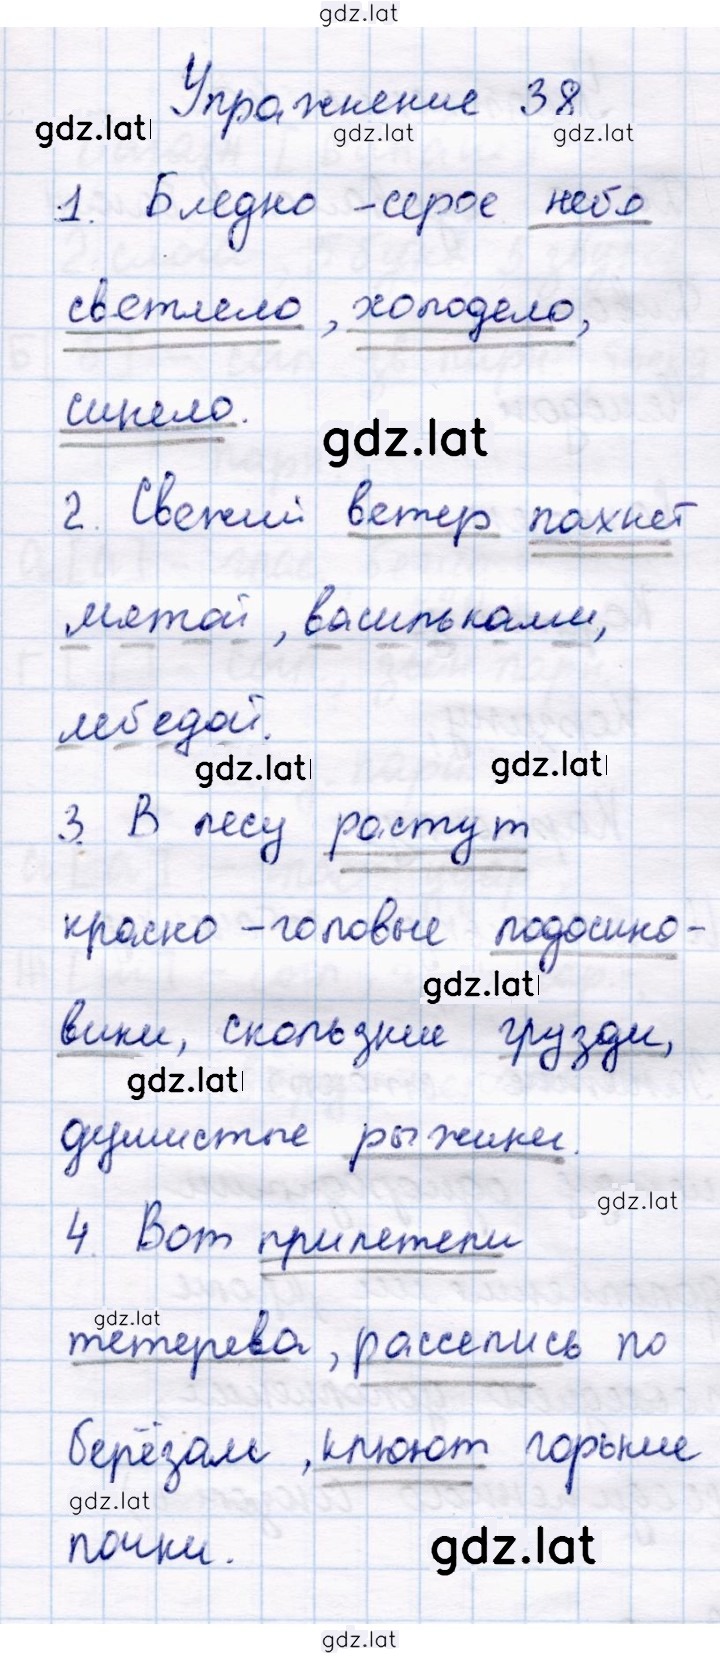 gdz.lat
Упражнение 38
gdz.lat gdz.lat gdz.lat
1. Бледно-серое небо
светлело, холодело,
синело.
gdz.lat
2. Свежий ветер пахнет
мятой, васильками,
лебедой.
gdz.lat gdz.lat
3. В лесу растут
красно-головые подосино-
gdz.lat
вики, скользкие грузди,
gdz.lat
душистые рыжики.
gdz.lat
4. Вот прилетели
gdz.lat
тетерева, расселись по
берёзам, клюют горькие
gdz.lat
почки.
gdz.lat
gdz.lat